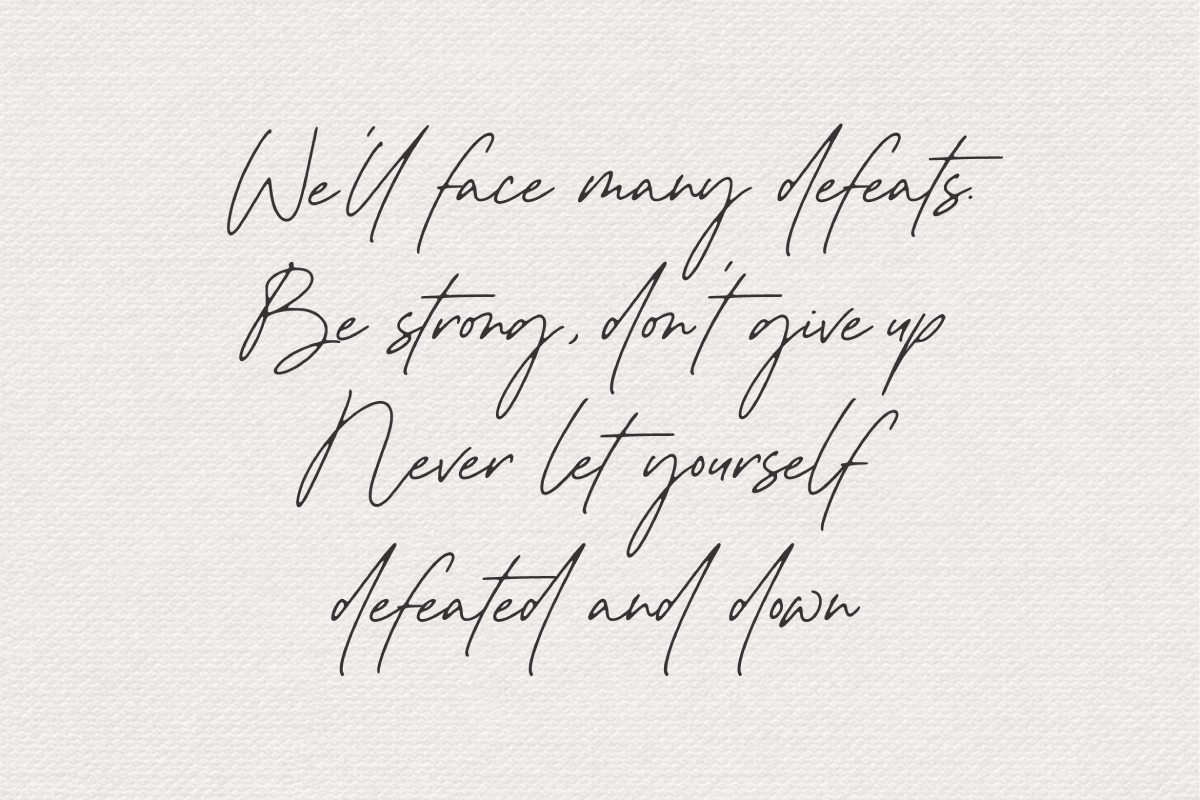 We'll face many defeats.
Be strong, don't give up
Never let yourself
defeated and down